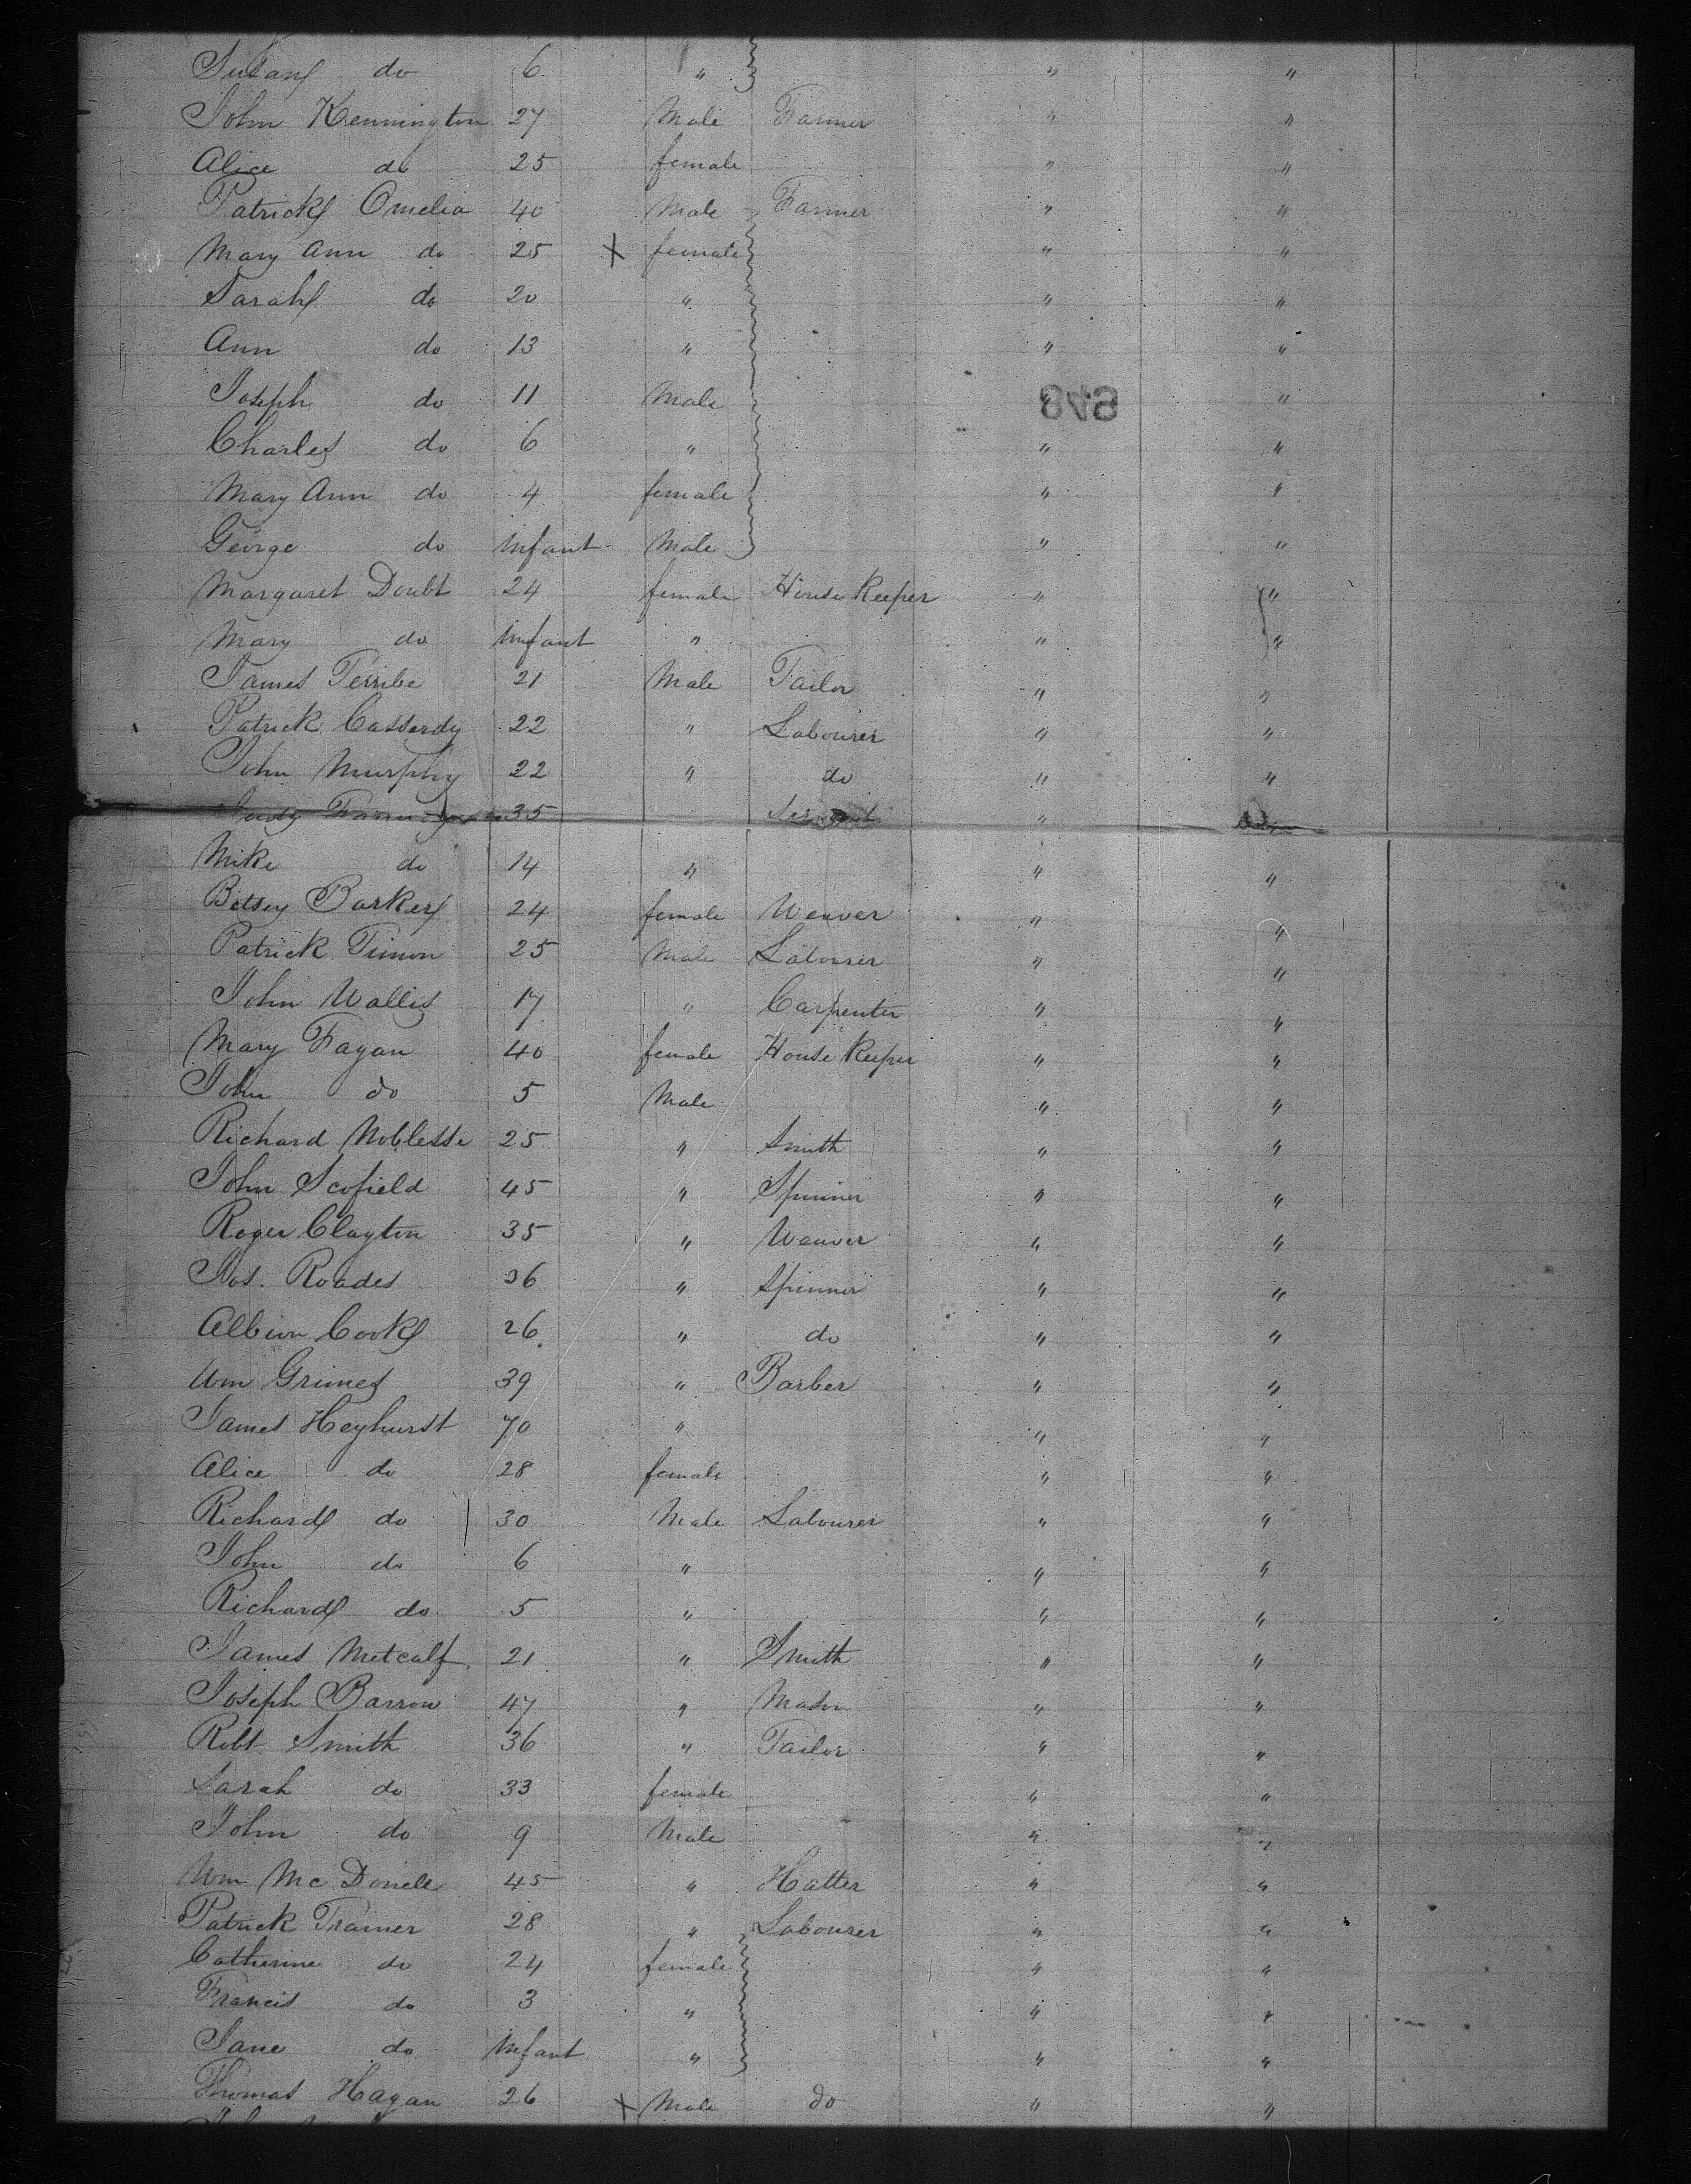 Susan do 6 " " "
John Kennington 27 Male Farmer " "
Alice do 25 female " "
Patrick Omelia 40 Male Farmer " "
Mary Ann do 25 X female " "
Sarah do 20 " " "
Ann do 13 " " "
Joseph do 11 Male " "
849
Charles do 6 " " "
Mary Ann do 4 female " "
George do infant Male " "
Margaret Doubt 24 female House Keeper " "
Mary do infant " " "
James Terribe 21 Male Tailor " "
Patrick Casserdy 22 " Labourer " "
John Murphy 22 " do " "
Judy 35 Servant "
Mike do 14 " " "
Betsey Barker 24 female Weaver " "
Patrick Timon 25 Male Labourer " "
John Wallis 17 " Carpenter " "
Mary Fagan 40 female House Keeper " "
John do 5 Male " "
Richard Noblesse 25 " Smith " "
John Scofield 45 " Spinner " "
Roger Clayton 35 " Weaver " "
Jos. Roades 36 " Spinner " "
Albion Cook 26 " do " "
Wm Grimes 39 " Barber " "
James Heyhurst 70 " " "
Alice do 28 female " "
Richard do 30 Male Labourer " "
John do 6 " " "
Richard do 5 " " "
James Metcalf 21 " Smith " "
Joseph Barrow 47 " Mason " "
Robt Smith 36 " Tailor " "
Sarah do 33 female " "
John do 9 Male " "
Wm Mc Donele 45 " Hatter " "
Patrick Tramer 28 " Labourer " "
Catherine do 24 female " "
Francis do 3 " " "
Jane do infant " " "
Thomas Hagan 26 X Male do " "